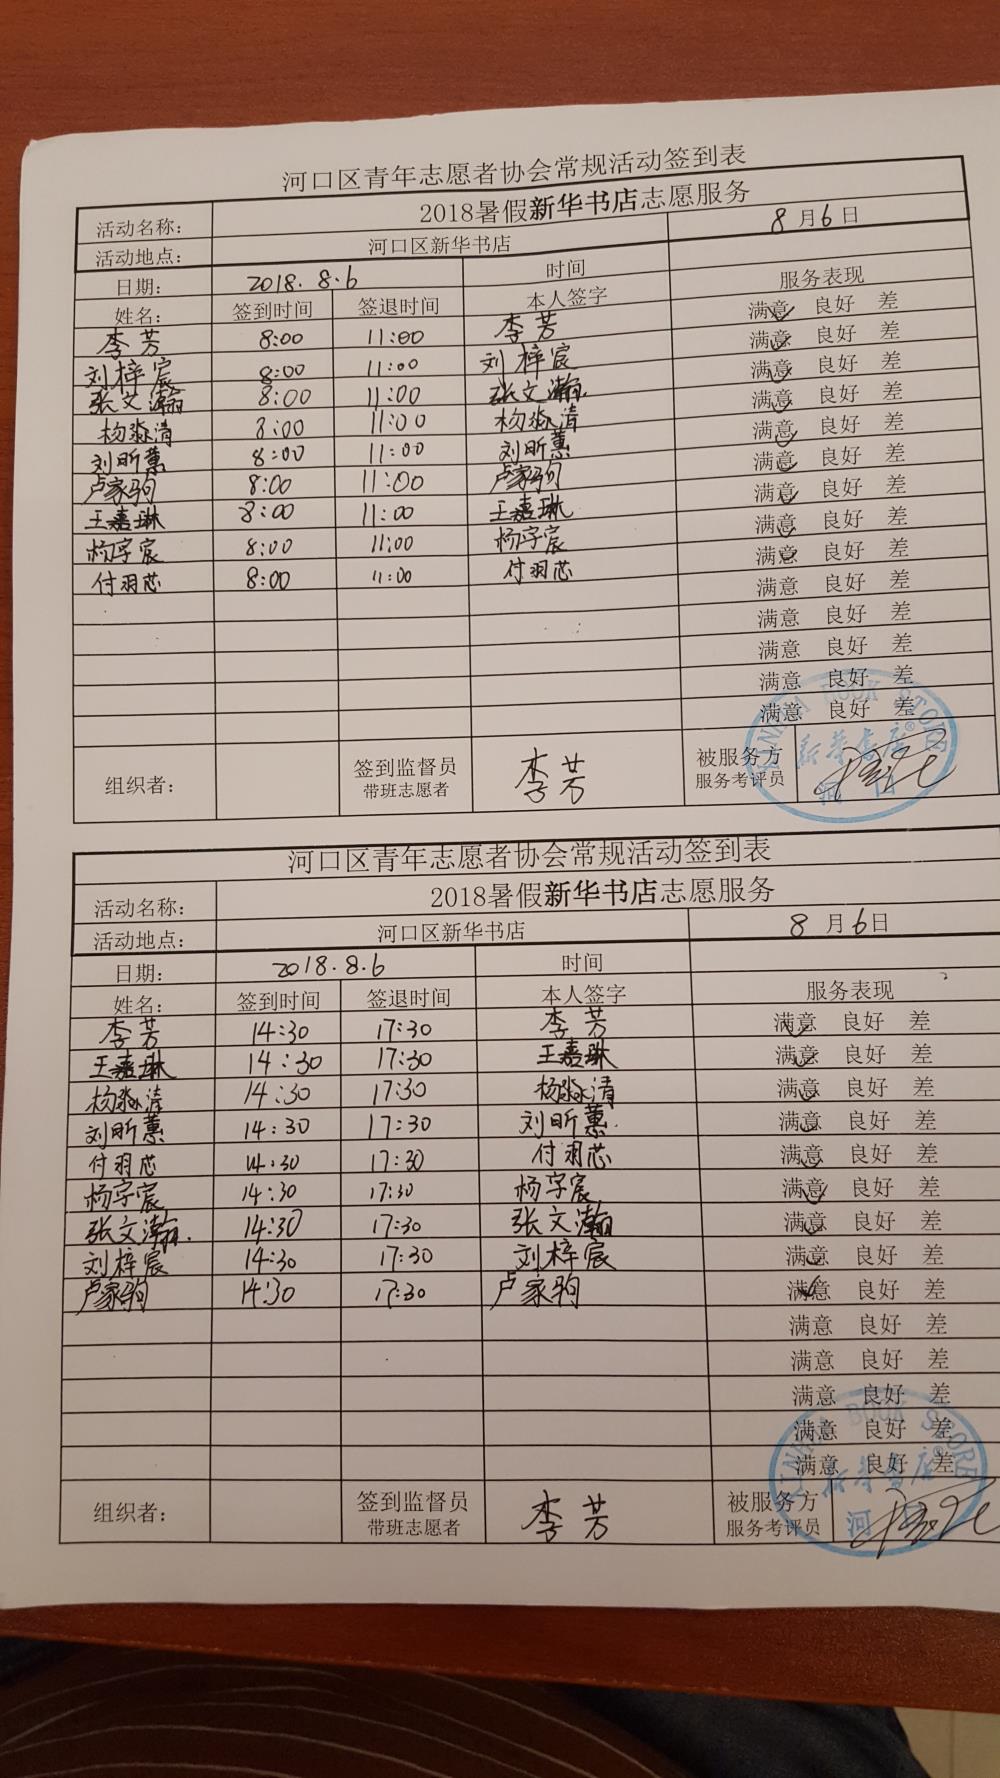 河口区青年志愿者协会常规活动签到表
活动名称： 2018暑假新华书店志愿服务
活动地点： 河口区新华书店 8月6日
日期： 2018.8.6 时间
姓名： 签到时间 签退时间 本人签字 服务表现
李芳 8:00 11:00 李芳 满意 良好 差
刘梓宸 8:00 11:00 刘梓宸 满意 良好 差
张文瀚 8:00 11:00 张文瀚 满意 良好 差
杨淼清 8:00 11:00 杨淼清 满意 良好 差
刘昕蕙 8:00 11:00 刘昕蕙 满意 良好 差
卢家驹 8:00 11:00 卢家驹 满意 良好 差
王嘉琳 8:00 11:00 王嘉琳 满意 良好 差
杨字宸 8:00 11:00 杨字宸 满意 良好 差
付羽芯 8:00 11:00 付羽芯 满意 良好 差
满意 良好 差
满意 良好 差
满意 良好 差
满意 良好 差
满意 良好 差
组织者： 签到监督员 李芳 被服务方
带班志愿者 服务考评员
XINHUA BOOK STORE
新华书店®
河口
河口区青年志愿者协会常规活动签到表
活动名称： 2018暑假新华书店志愿服务
活动地点： 河口区新华书店 8月6日
日期： 2018.8.6 时间
姓名： 签到时间 签退时间 本人签字 服务表现
李芳 14:30 17:30 李芳 满意 良好 差
王嘉琳 14:30 17:30 王嘉琳 满意 良好 差
杨淼清 14:30 17:30 杨淼清 满意 良好 差
刘昕蕙 14:30 17:30 刘昕蕙 满意 良好 差
付羽芯 14:30 17:30 付羽芯 满意 良好 差
杨字宸 14:30 17:30 杨字宸 满意 良好 差
张文瀚 14:30 17:30 张文瀚 满意 良好 差
刘梓宸 14:30 17:30 刘梓宸 满意 良好 差
卢家驹 14:30 17:30 卢家驹 满意 良好 差
满意 良好 差
满意 良好 差
满意 良好 差
满意 良好 差
满意 良好 差
组织者： 签到监督员 李芳 被服务方
带班志愿者 服务考评员
XINHUA BOOK STORE
新华书店®
河